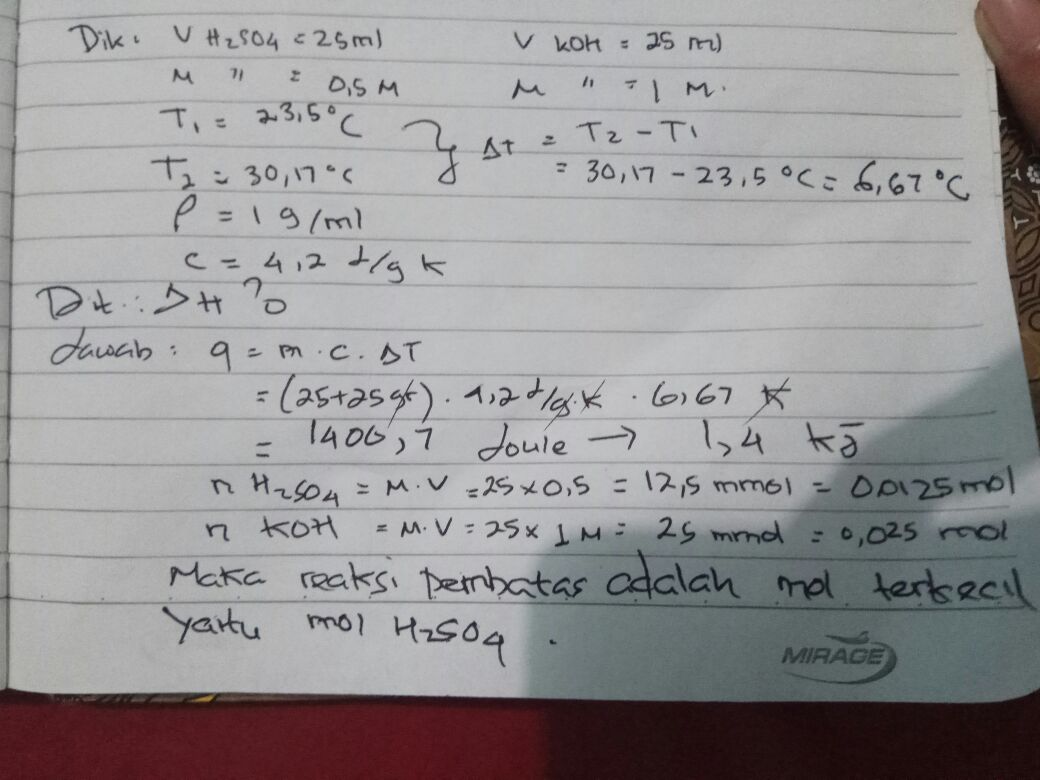 Dik: V H2SO4 = 25 ml V KOH = 25 ml
M " = 0,5 M M " = 1 M.
T1 = 23,5°C } Δt = T2 - T1
T2 = 30,17°C = 30,17 - 23,5 °C = 6,67 °C
ρ = 1 g/ml
c = 4,2 J/g K
Dit: ΔH ?
Jawab: q = m . c . ΔT
= (25+25 gr) . 4,2 J/g.K . 6,67 K
= 1400,7 Joule → 1,4 kJ
n H2SO4 = M.V = 25 x 0,5 = 12,5 mmol = 0,0125 mol
n KOH = M.V = 25 x 1 M = 25 mmol = 0,025 mol
Maka reaksi pembatas adalah mol terkecil
yaitu mol H2SO4 .
MIRAGE